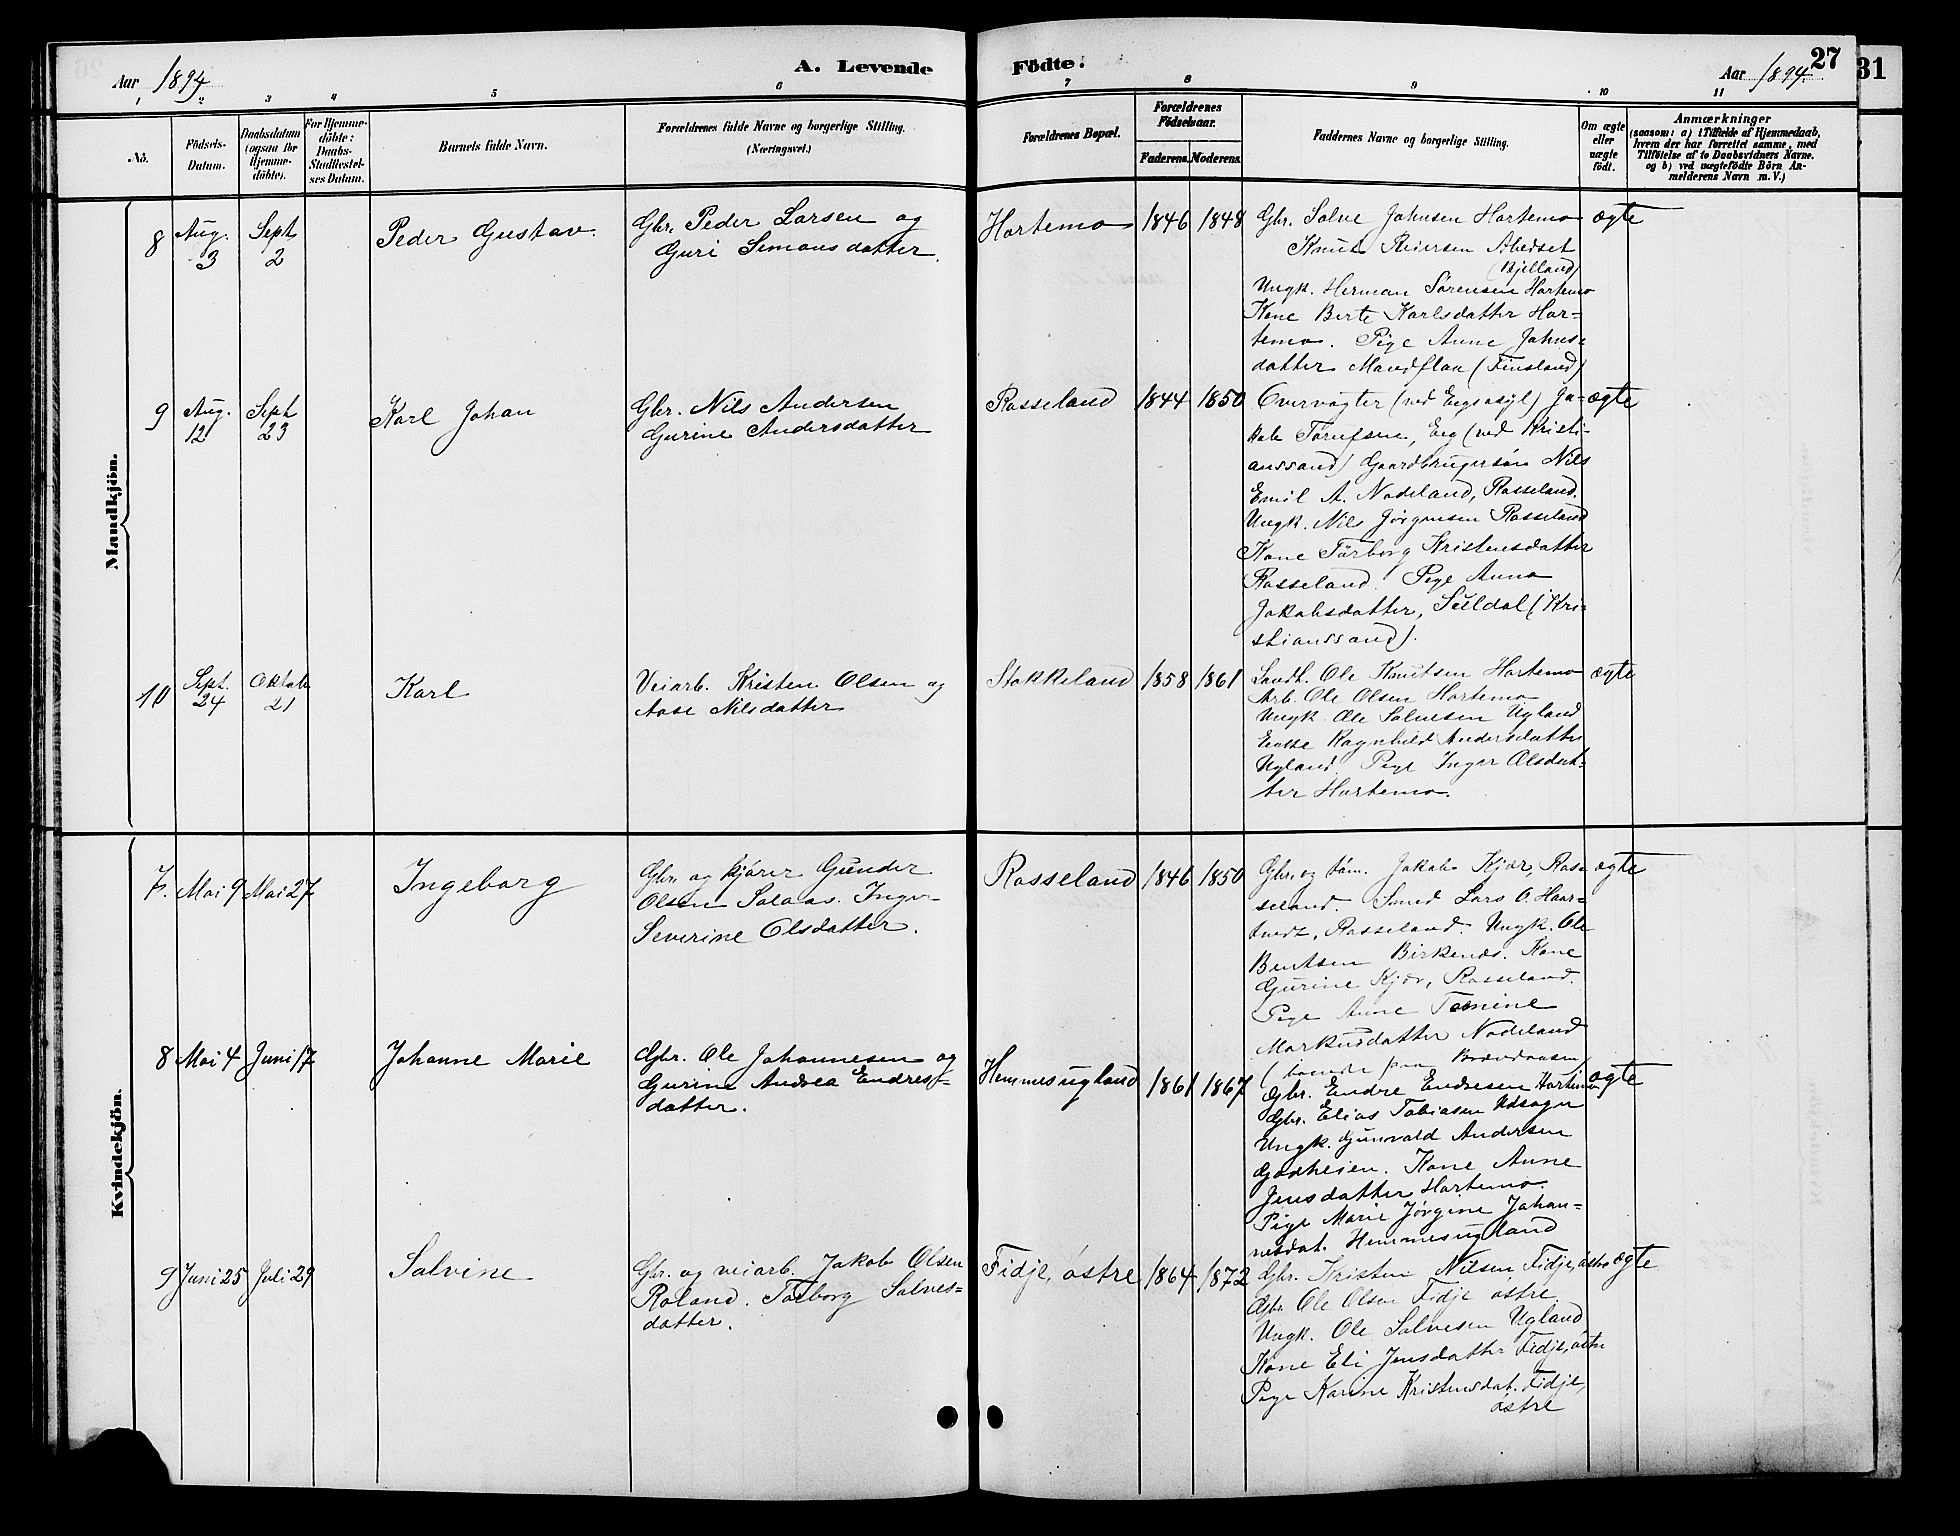 Aar 1894
A. Levende
Födte.
Aar 1894.
27
31
1 2 3 4 5 6 7 8 9 10 11
No.
Födsels-
Datum.
Daabsdatum
(ogsaa for
Hjemme-
döbte).
For Hjemme-
döbte:
Daabs-
Stadfæstel-
ses Datum.
Barnets fulde Navn.
Forældrenes fulde Navne og borgerlige Stilling.
(Næringsvei.)
Forældrenes Bopæl.
Forældrenes
Födselsaar.
Faderens.
Moderens.
Faddernes Navne og borgerlige Stilling.
Om ægte
eller
uægte
födt.
Anmærkninger
(saasom: a) i Tilfælde af Hjemmedaab,
hvem der har forrettet samme, med
Tilföielse af to Daabsvidners Navne.
og b) ved uægtefödte Börn An-
melderens Navn m. V.)
Mandkjön.
8
Aug.
3
Sept
2
Peder Gustav.
Gbr. Peder Larsen og
Guri Simonsdatter.
Hortemo
1846
1848
Gbr. Salve Johnsen Hortemo
Knut Reiersen Abedset
(Bjelland)
Ungk. Herman Sørensen Hortemo
Kone Berte Karlsdatter Hor-
temo. Pige Anne Johns-
datter Mandflaa (Finsland)
ægte
9
Aug.
12
Sept
23
Karl Johan
Gbr. Nils Andersen
Gurine Andersdatter
Rosseland
1844
1850
Overvogter (ved Eegs asyl) Ja-
kob Eeg (ved Kristi-
anssand) Gaardbrugersøn Nils
Emil A. Nodeland, Rosseland.
Ungk. Nils Jørgensen Rosseland
Kone Torborg Kristensdatter
Rosseland. Pige Anna
Jakobsdatter, Suldal (Kri-
stianssand).
ægte
10
Sept.
24
Oktob
21
Karl
Veiarb. Kristen Olsen og
Aase Nilsdatter
Stokkeland
1858
1861
Landh. Ole Knutsen Hortemo
Arb. Ole Olsen Hortemo
Ungk. Ole Salvesen Ugland
Enke Ragnhild Andersdatter
Ugland. Pige Inger Olsdat-
ter Hortemo.
ægte
Kvindekjön.
7.
Mai 9
Mai 27
Ingeborg
Gbr. og kjører Gunder
Olsen Salaas. Inger
Severine Olsdatter.
Rosseland
1846
1850
Gbr. og tøm. Jakob Kjær, Ros-
seland. Smed Lars O. Haar-
tvedt, Rosseland. Ungk. Ole
Bentsen Birkenæs. Kone
Gurine Kjær, Rosseland.
Pige Anne Tomine
Markusdatter Nodeland
ægte
8
Mai 4
Juni 17
Johanne Marie
Gbr. Ole Johannesen og
Gurine Andrea Endres-
datter.
Hemmesugland
1861
1867
Gbr. Endre Endresen Hortemo
Gbr. Elias Tobiasen
Ungk. Gunvald Andersen
Kone Anne
Jensdatter Hortemo.
Pige Marie Jørgine Johan-
nesdat. Hemmesugland
ægte
9
Juni 25
Juli 29
Salvine
Gbr. og veiarb. Jakob Olsen
Roland. Torborg Salves-
datter.
Fidje, østre
1864
1872
Gbr. Kristen Nilsen Fidje, østre
Gbr. Ole Olsen Fidje østre
Ungk. Ole Salvesen Ugland
Kone Eli Jensdatter Fidje, østre
Pige Karine Kristensdat. Fidje,
østre
ægte